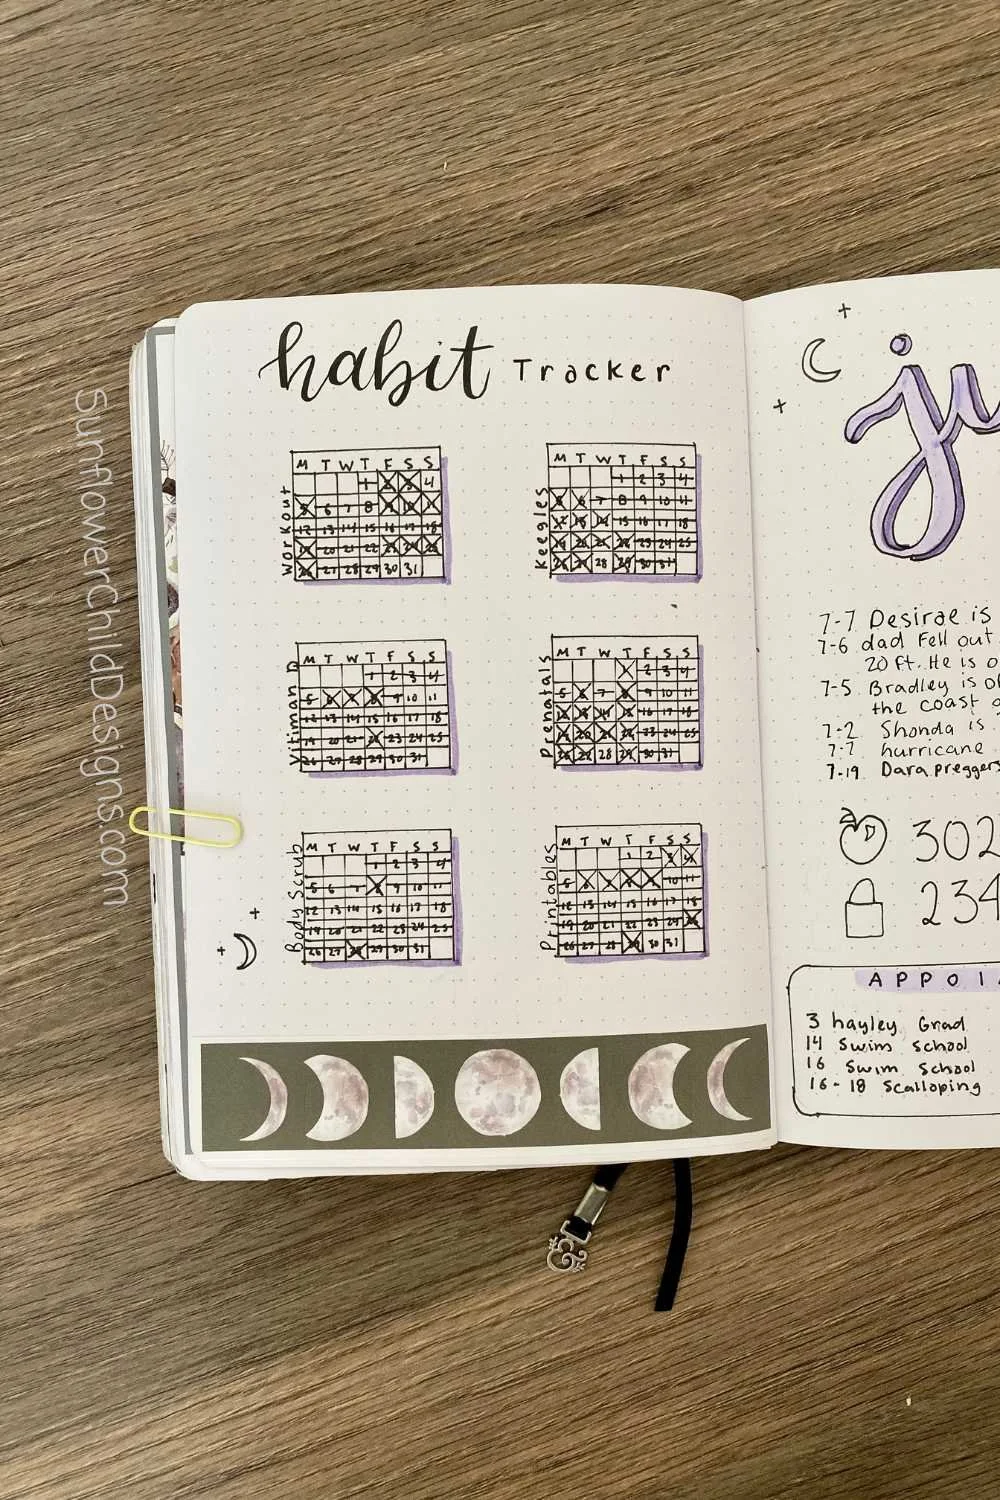 habit Tracker
Workout
M T W T F S S
1 2 3 4
5 6 7 8 9 10 11
12 13 14 15 16 17 18
19 20 21 22 23 24 25
26 27 28 29 30 31
Keegles
M T W T F S S
1 2 3 4
5 6 7 8 9 10 11
12 13 14 15 16 17 18
19 20 21 22 23 24 25
26 27 28 29 30 31
Vitiman D
M T W T F S S
1 2 3 4
5 6 7 8 9 10 11
12 13 14 15 16 17 18
19 20 21 22 23 24 25
26 27 28 29 30 31
Prenatals
M T W T F S S
1 2 3 4
5 6 7 8 9 10 11
12 13 14 15 16 17 18
19 20 21 22 23 24 25
26 27 28 29 30 31
Body Scrub
M T W T F S S
1 2 3 4
5 6 7 8 9 10 11
12 13 14 15 16 17 18
19 20 21 22 23 24 25
26 27 28 29 30 31
Printables
M T W T F S S
1 2 3 4
5 6 7 8 9 10 11
12 13 14 15 16 17 18
19 20 21 22 23 24 25
26 27 28 29 30 31
ju
7-7 Desirae is
7-6 dad Fell out
20 ft. He is o
7-5 Bradley is of
the coast o
7-2 Shonda is
7-7 hurricane
7-19 Dara preggers
302
234
APPOI
3 hayley Grad
14 Swim School
16 Swim School
16-18 Scalloping
SunflowerChildDesigns.com